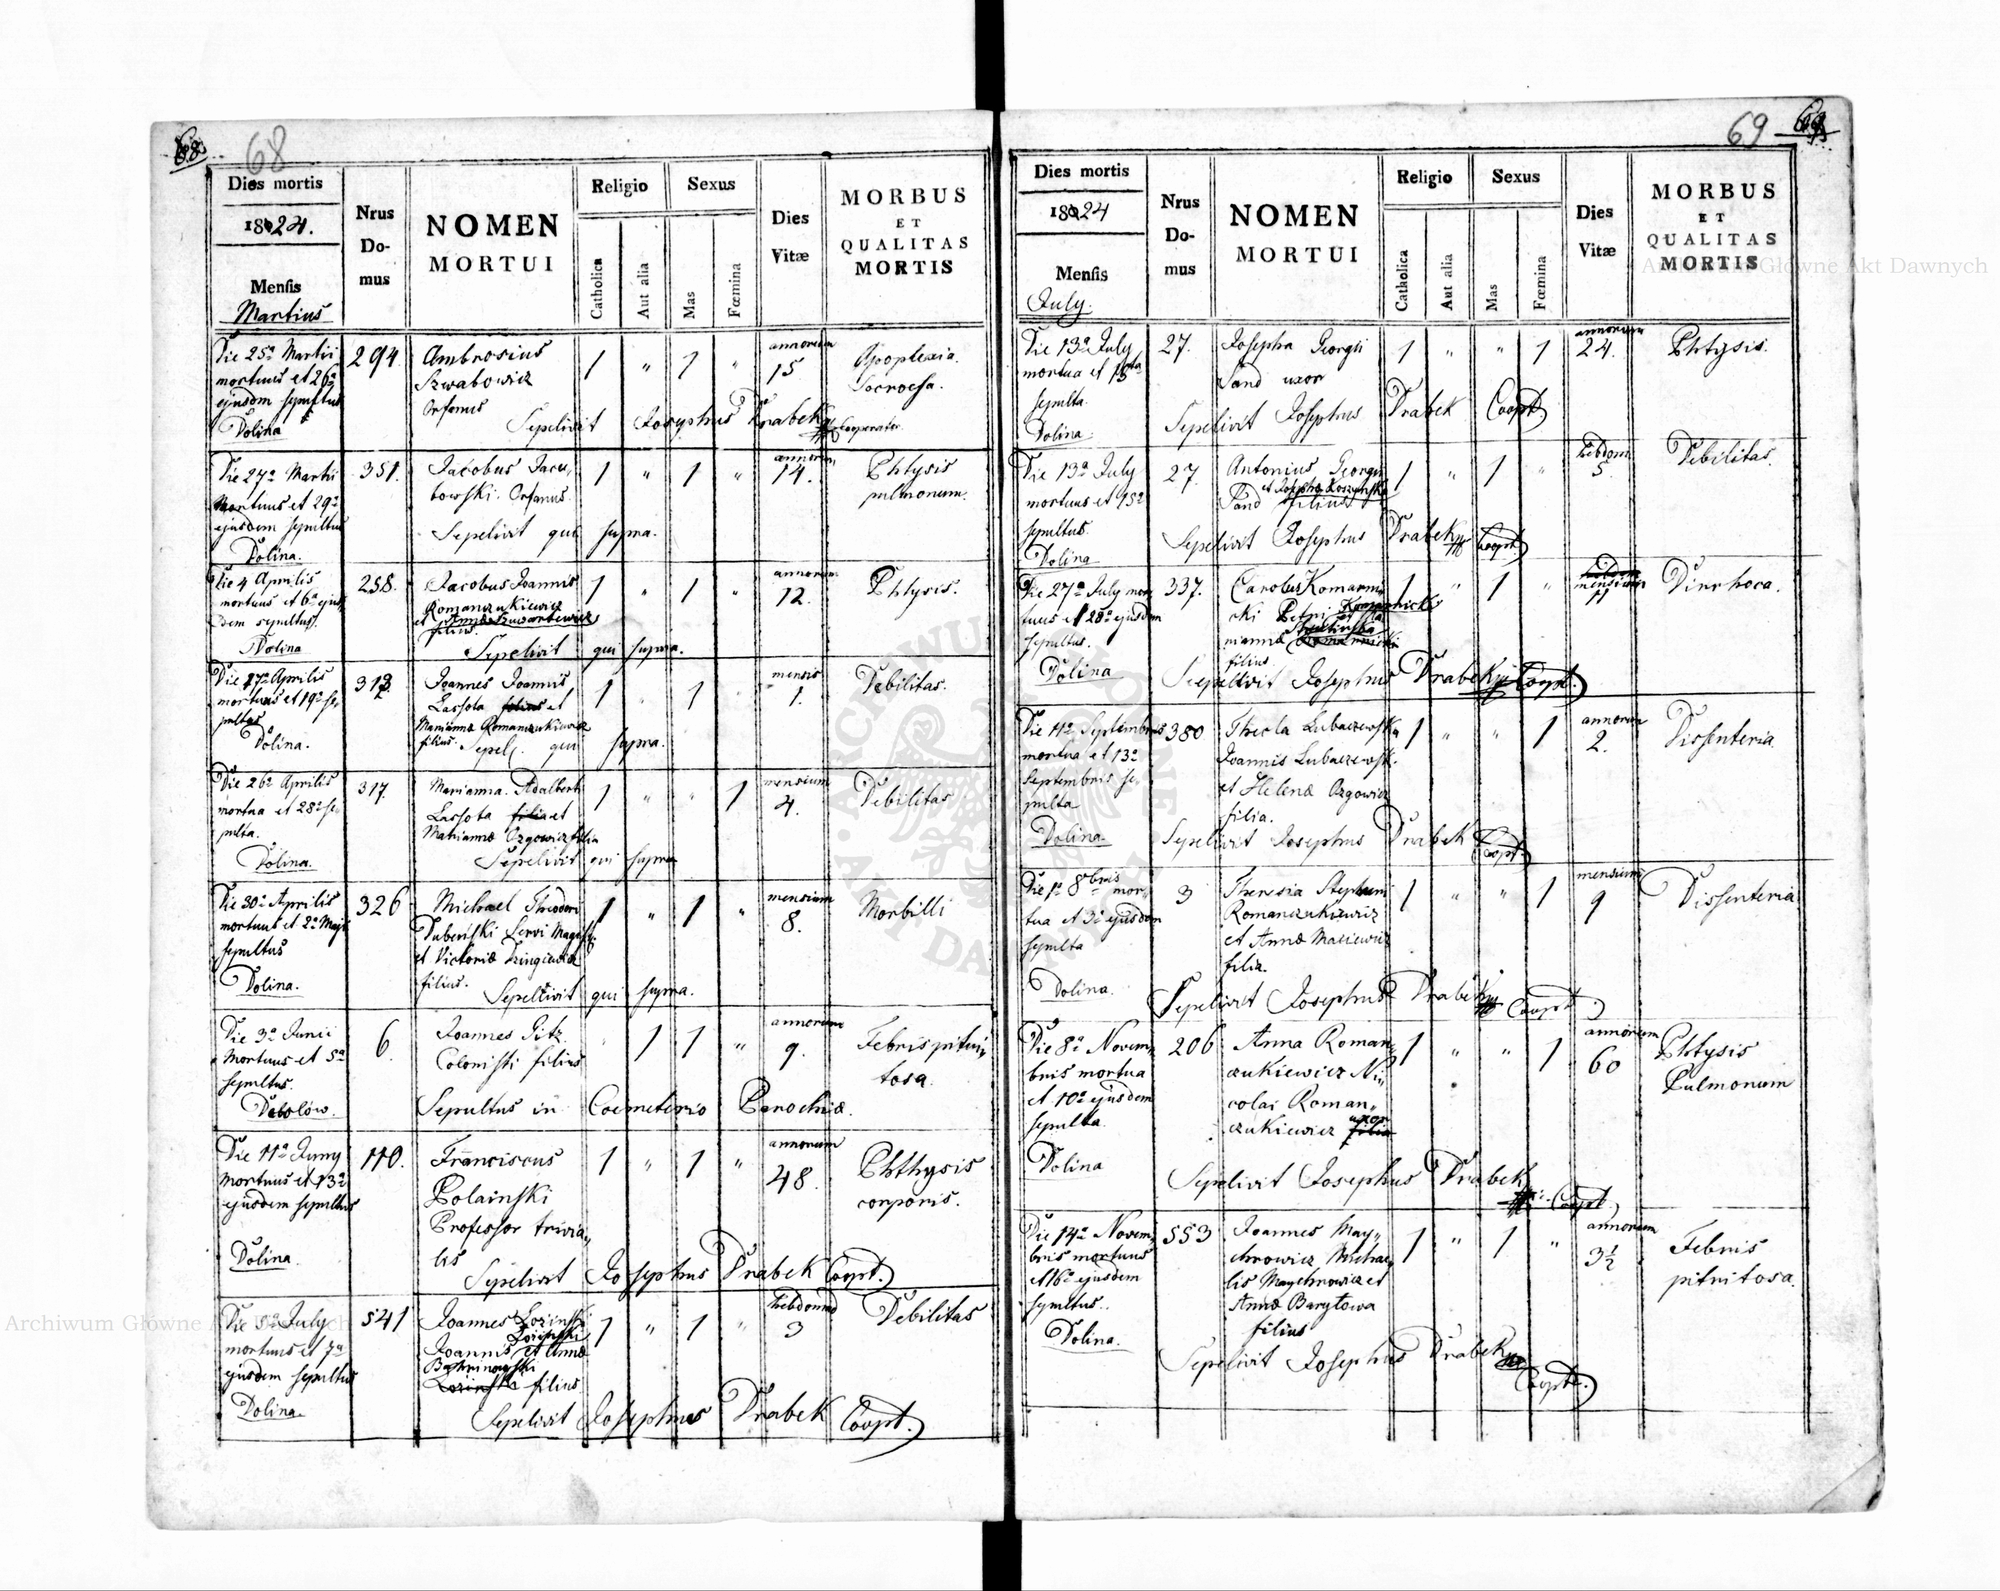 68
Dies mortis
1824.
Mensis
Martius
Nrus
Do-
mus
NOMEN
MORTUI
Religio
Catholica
Aut alia
Sexus
Mas
Fœmina
Dies
Vitæ
MORBUS
ET
QUALITAS
MORTIS
Die 25a Martii
mortuus et 26a
ejusdem sepultus
Dolina
294
Ambrosius
Szwabowicz
Orfanus
1 " 1 "
annorum
15
Apoplexia
Sepelivit Josephus Drabek
Cooperator
Die 27a Martii
Mortuus et 29a
ejusdem sepultus
Dolina.
351.
Jacobus Jacu,
bowski. Orfanus.
1 " 1 "
annorum
14.
Phtysis
pulmonum.
Sepelivit qui supra.
Die 4 Aprilis
mortuus et 6a ejus
dem sepultus.
Dolina
258.
Jacobus Joannis
Romanczukiewicz
filius.
1 " 1 "
annorum
12.
Phtysis.
Sepelivit qui supra.
Die 17a Aprilis
mortuus et 19a se,
pultus
Dolina.
Joannes Joannis
Lassota filius et
Mariannæ Romanczukiewicz
filius.
1 " 1
mensis
1.
Debilitas.
Sepel. qui supra.
Die 26a Aprilis
mortua et 28a se,
pulta.
Dolina.
317.
Marianna Adalberti
Lassota filia et
Mariannæ Ozgowicz filia
1 " " 1
mensium
4.
Debilitas
Sepelivit qui supra
Die 30a Aprilis
mortuus et 2a Maji
sepultus
Dolina.
326
Michael Theodori
et Victoriæ
filius.
1 " 1 "
mensium
8.
Morbilli
Sepelivit qui supra.
Die 3a Junii
Mortuus et 5a
sepultus.
6.
Joannes Pitz
Colonisti filius
1 1 "
annorum
9.
Febris pitui,
tosa.
Sepultus in Coemeterio Parochiæ.
Die 11a Juny
mortuus et 13a
ejusdem sepultus
Dolina.
110.
Franciscus
Polainski
Professor trivia,
lis
1 " 1 "
annorum
48.
Phthysis
corporis.
Sepelivit Josephus Drabek Coopt.
Die 5a July
mortuus et 7a
ejusdem sepultus
Dolina.
541
Joannes Lozinski
Joannis Lozinski et Annæ
Lozinski filius
1 " 1 "
hebdomad
3
Debilitas
Sepelivit Josephus Drabek Coopt.
69
Dies mortis
1824
Mensis
July.
Nrus
Do-
mus
NOMEN
MORTUI
Religio
Catholica
Aut alia
Sexus
Mas
Fœmina
Dies
Vitæ
MORBUS
ET
QUALITAS
MORTIS
Die 13a July
mortua et 15ta
sepulta.
Dolina.
27.
Josepha Georgii
Sand uxor
1 " " 1
annorum
24.
Phtysis.
Sepelivit Josephus Drabek Coopt.
Die 13a July
mortuus et 15a
sepultus.
Dolina
27.
Antonius Georgii
Sand filius
1 " 1 "
hebdom
5.
Debilitas.
Sepelivit Josephus Drabek Coopt.
Die 27a July mor
tuus et 28a ejusdem
sepultus.
Dolina
337.
Carolus Komarni
cki Petri Komarnicki et Ma
riannæ
filius
1 " 1 "
mensium
11
Diarrhoea.
Sepelivit Josephus Drabek Coopt.
Die 11a Septembris
mortua et 13a
Septembris se,
pulta
Dolina.
380
Thecla Lubaczewska
Joannis Lubaczewsk.
et Helenæ Ozgowicz
filia.
1 " " 1
annorum
2.
Dissenteria.
Sepelivit Josephus Drabek Coopt.
Die 1a 8bris mor,
tua et 3a ejusdem
sepulta
Dolina.
3
Theresia Stephani
Romanczukiewicz
et Annæ Masiewicz
filia.
1 " " 1
mensium
9
Dissenteria
Sepelivit Josephus Drabek Coopt.
Die 8a Novem,
bris mortua
et 10a ejusdem
sepulta.
Dolina
206
Anna Roman,
czukiewicz Ni,
colai Roman,
czukiewicz uxor
filia
1 " " 1
annorum
60
Phtysis
Pulmonum
Sepelivit Josephus Drabek
Coopt.
Die 14a Novem,
bris mortuus
et 16a ejusdem
sepultus.
Dolina.
553
Joannes May,
chrowicz Michae,
lis Maychrowicz et
Annæ Barylowa
filius
1 " 1 "
annorum
3½
Febris
pituitosa.
Sepelivit Josephus Drabek
Coopt.
Archiwum Główne Akt Dawnych
Archiwum Główne Akt Dawnych
ARCHIWUM GŁÓWNE AKT DAWNYCH